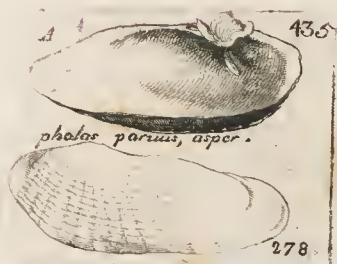 435
pholas parvus, asper.
278